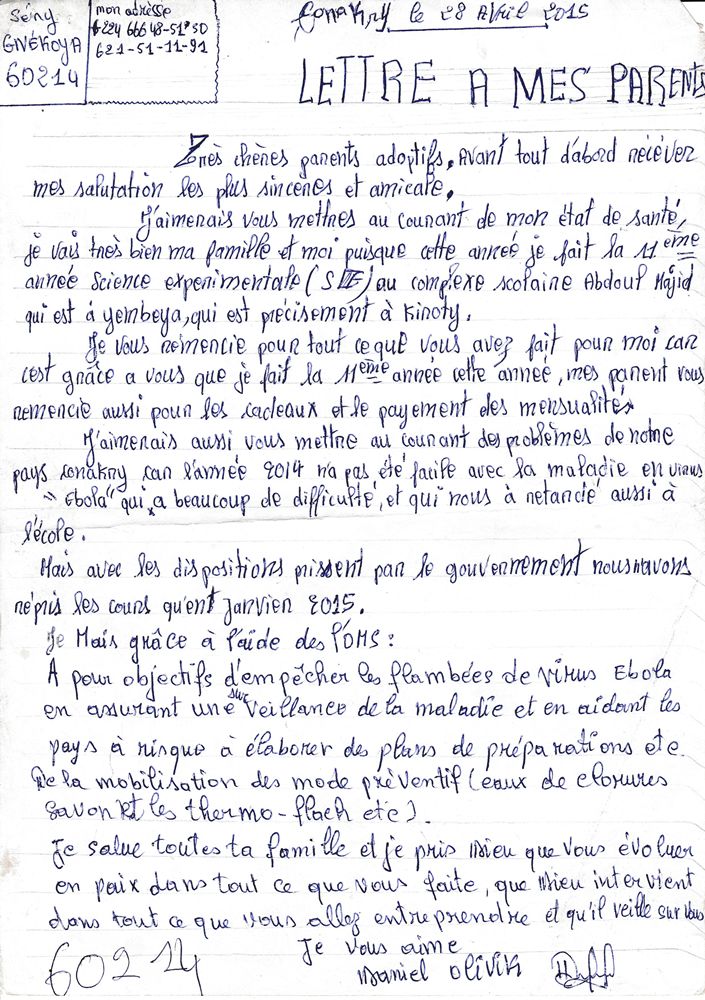 Sény
GNÉKOYA
60214
mon adrèsse
+224 666 48-51-50
621-51-11-91
Conakry le 28 Avril 2015
LETTRE A MES PARENTS
Très chères parents adoptifs, Avant tout d'abord recéver
mes salutation les plus sinceres et amicale.
J'aimerais vous mettres au courant de mon état de santé,
je vais très bien ma famille et moi puisque cette année je fait la 11ème
année Science experimentale (SE) au complexe scolaire Abdoul Majid
qui est á yembeya, qui est précisement à Kinoty.
Je vous remercie pour tout ce que vous avez fait pour moi car
cest grâce a vous que je fait la 11ème année cette année, mes parent vous
remercie aussi pour les cadeaux et le payement des mensualités
J'aimerais aussi vous mettre au courant des problèmes de notre
pays conakry car l'année 2014 n'a pas été facile avec la maladie en virus
"Ebola" qui a beaucoup de difficulté, et qui nous à retardé aussi à
l'école.
Mais avec les dispositions prissent par le gouvernement nous avons
répris les cours qu'ent Janvier 2015.
Je Mais grâce à l'aide des l'OMS :
A pour objectifs d'empêcher les flambées de virus Ebola
en assurant une surveillance de la maladie et en aidant les
pays à risque à élaborer des plans de préparations etc.
De la mobilisation des mode préventif (eaux de clorures
savon et les thermo-flach etc).
Je salue toutes ta famille et je pris Dieu que vous évoluer
en paix dans tout ce que vous faite, que Dieu intervient
dans tout ce que vous allez entreprendre et qu'il veille sur vous
Je vous aime
60214
Daniel Olivik